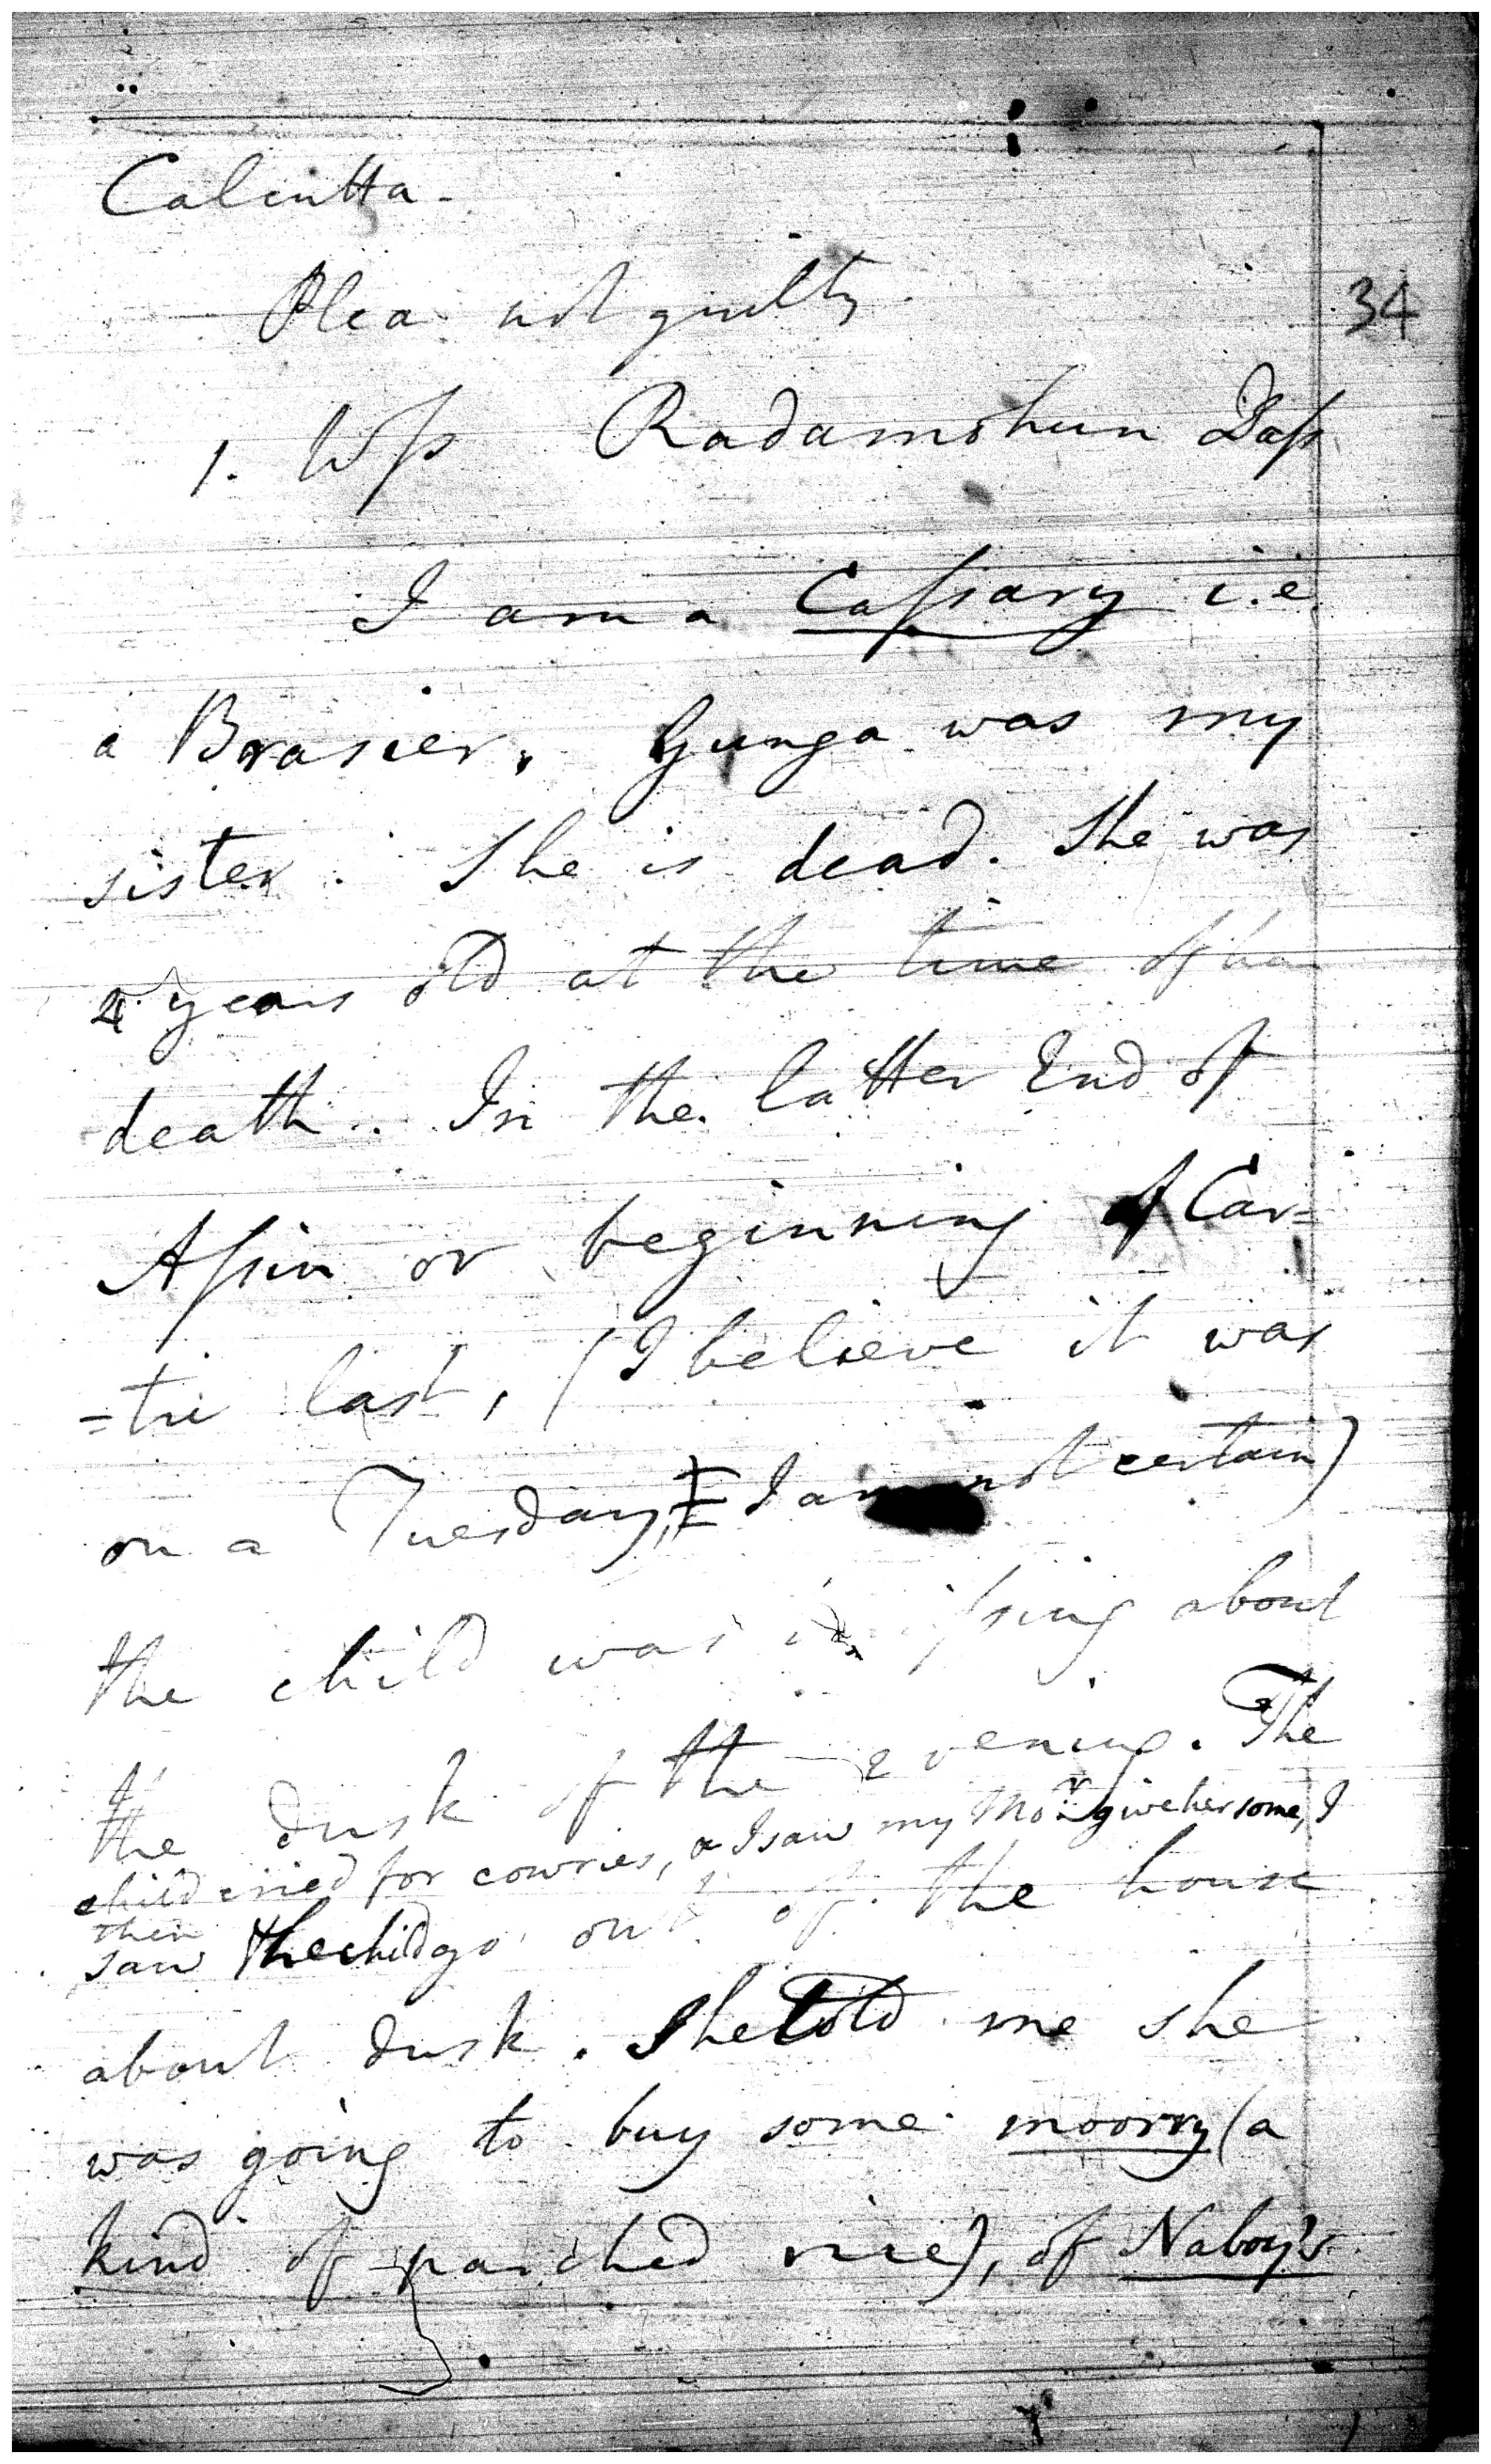 Calcutta.
Plea not guilty.
34
1. Wſs Radamohun Daſs
I am a Caſsary i.e.
a Brasier. Gunga was my
sister. She is dead. She was
4 years old at the time of her
death. In the latter End of
Aſsin or beginning of Car=
=tic last, (I believe it was
on a Tuesday, I am not certain)
the child was miſsing about
the dusk of the evening. The
child cried for cowries, & I saw my Mo:r give her some, I
then
saw the child go out of the house
about dusk. She told me she
was going to buy some moorry (a
kind of parched rice), of Naboy's